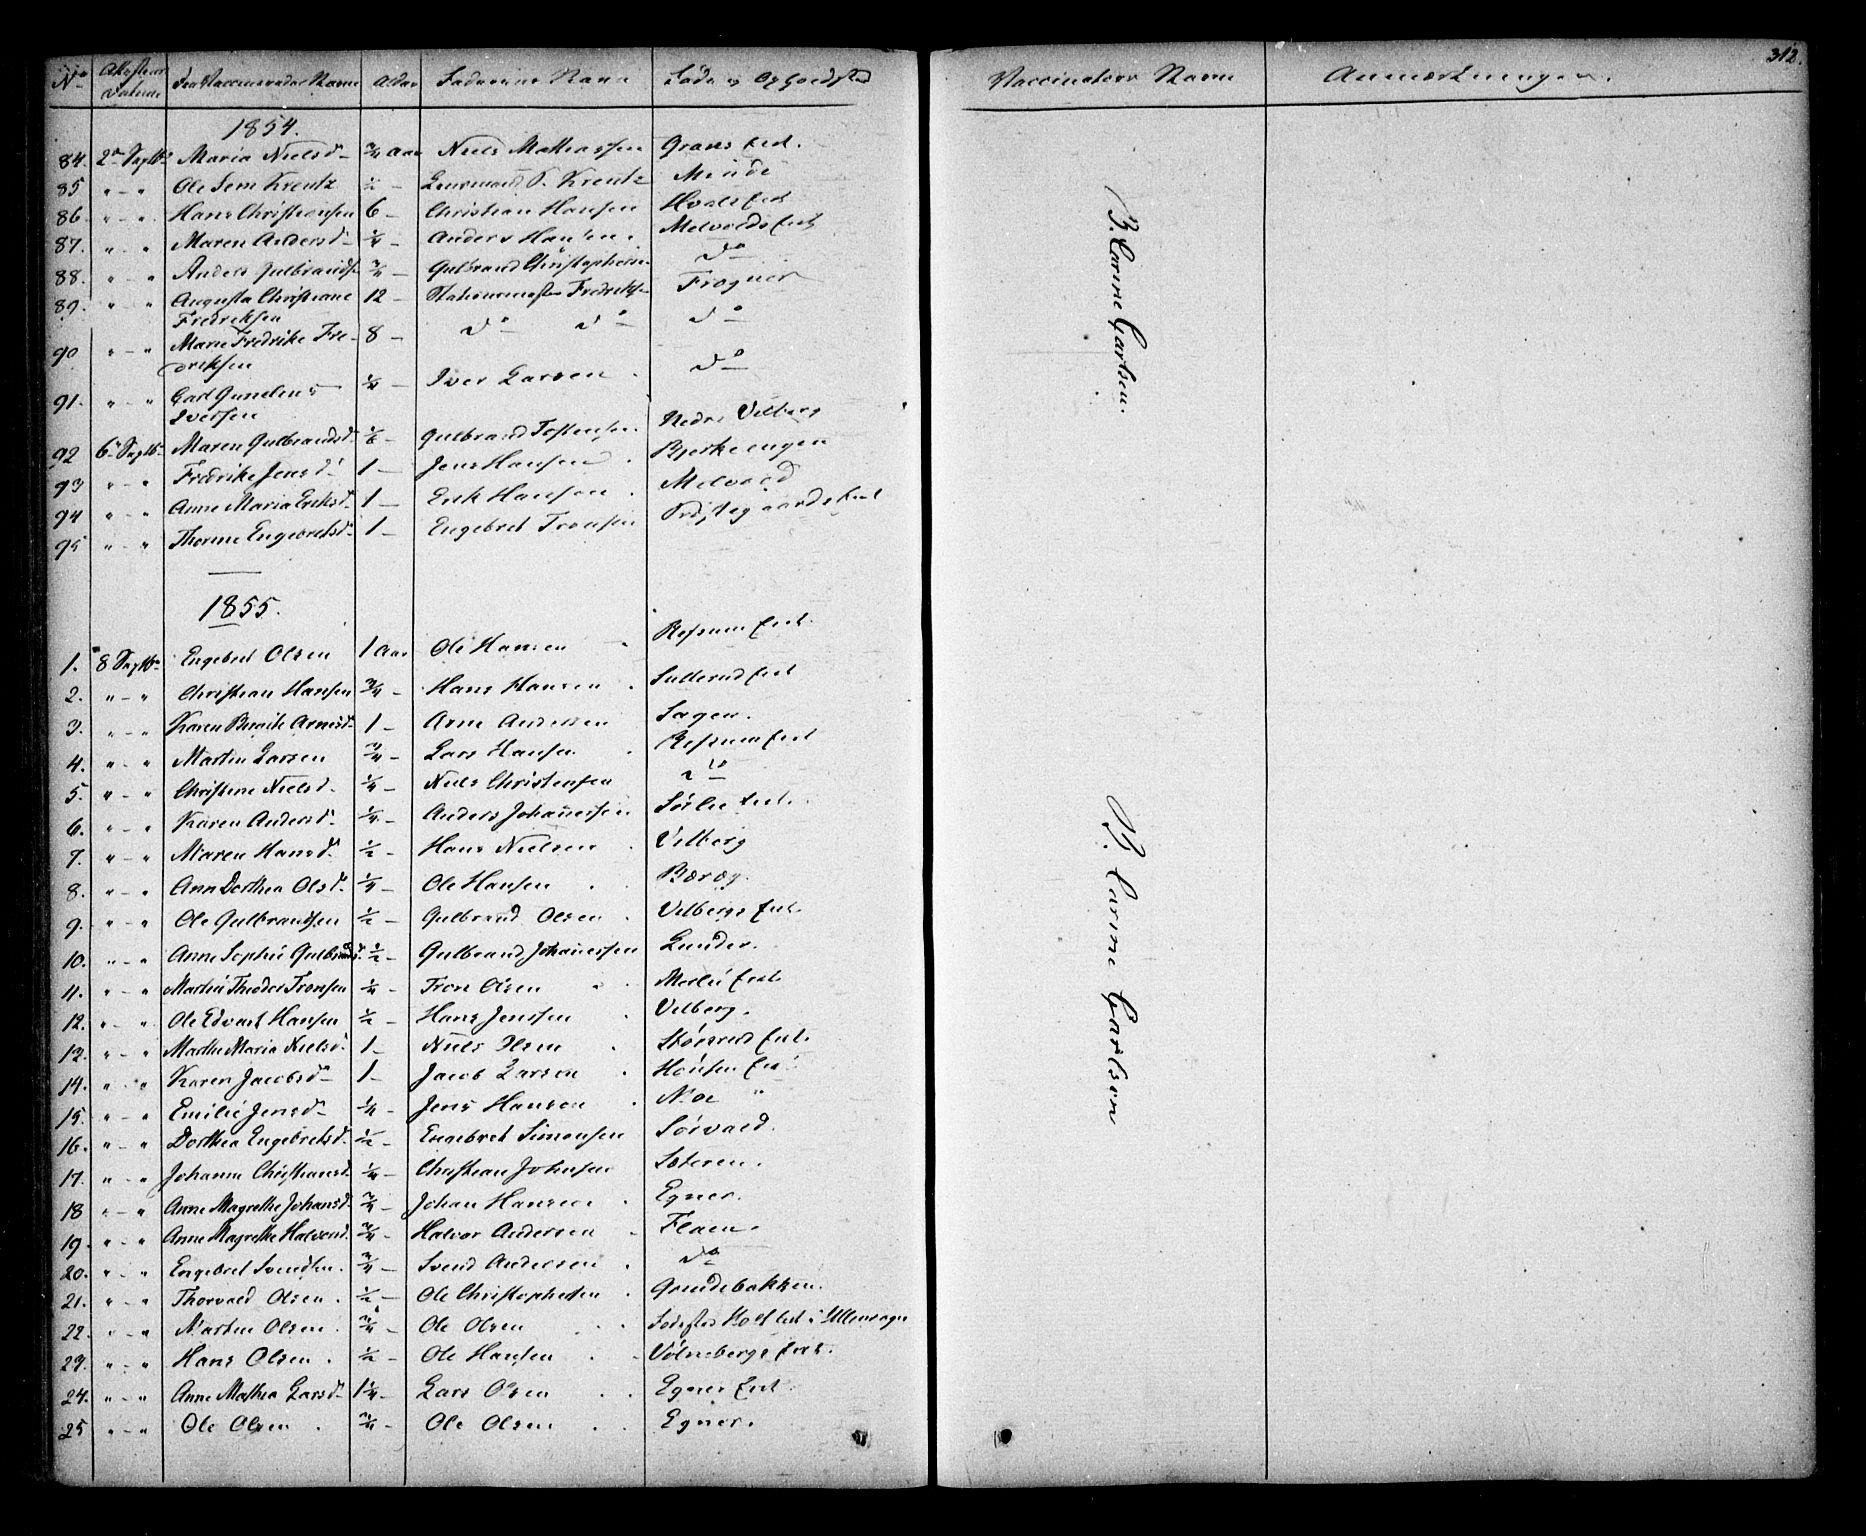 312.
No Attestens Datum Den Vaccineredes Navn Alder Faderens Navn Føde og Opholdsted Vaccinateur Navn Anmærkninger.
1854.
84. 2n Septbr Maria Nielsd. 3/4 Aar Niels Mathiassen Grans Eiet.
85 " - " Ole Sem Kreutz - P. Kreutz Minde
86. " - " Hans Christiansen 6 - Christian Hansen Hvals Eiet
87. " - " Maren Andersd. 1/4 - Anders Hansen. Melvolds Eiet
88. " - " Anders Gulbrands. 3/4 - Gulbrand Christophersen do
89. " - " Augusta Christiane 12 - Stationsmester Fredriksen Frogner
Fredriksen
90 " - " Marie Fredrike Fre- 8 - do do do
driksen
91. " - " Carl Gunelius 1/4 - Iver Larsen. do
Iversen
92 6n Septbr Maren Gulbrandsd. 1/2 - Gulbrand Tostensen. Nedre Vilberg
93 " - " Fredrike Jensd. 1 - Jens Hansen. Bjerkeengen
94 " - " Anne Maria Eriksd. 1 - Erik Hansen. Melvold
95 " - " Thorine Engebretsd. 1 - Engebret Tronsen Præstegaards Eiet
1855.
1. 8 Septbr Engebret Olsen 1 Aar Ole Hansen Refsum Eiet.
2. " - " Christian Hansen 3/4 - Hans Hansen. Sullerud Eiet
3. " - " Karen Birgite Arnesd. 1 - Arne Andersen Sagen.
4. " - " Martin Larsen 3/4 - Lars Hansen. Refsum Eiet
5. " - " Christine Nielsd. 1/4 - Niels Christensen do
6. " - " Karen Andersd. 1/4 - Anders Johannessen Sørlie Eiet.
7. " - " Maren Hansd. 1/2 - Hans Nielsen. Vilberg
8. " - " Ann Dorthea Olsd. 1/4 - Ole Hansen. Børøg.
9. " - " Ole Gulbrandsen 1/2 - Gulbrand Olsen. Vilbergs Eiet.
10. " - " Anne Sophie Gulbrandsd. 1/2 - Gulbrand Johannessen Lunder.
11. " - " Martin Theodor Tronsen 1/4 - Tron Olsen. Merlie Eiet.
12. " - " Ole Edvart Hansen 1/2 - Hans Jenssen. Vilberg.
13. " - " Marthe Maria Nielsd. 1 - Niels Olsen. Størsrud Eiet.
14. " - " Karen Jacobsd. 1 - Jacob Larsen. Hønsen Eiet
15. " - " Emilie Jensd. 1/4 - Jens Hansen. Noe "
16. " - " Dorthea Engebretsd. 1/2 - Engebret Simensen Sørvald.
17. " - " Johanne Christiansd. 1/4 - Christian Johnsen Sæteren.
18 " - " Anne Magrethe Johansd. 3/4 - Johan Hansen. Egner.
19. " - " Anne Magrethe Halvorsd. 3/4 - Halvor Andersen. Flaen.
20. " - " Engebret Svendsen. 3/4 - Svend Andersen. do
21. " - " Thorvald Olsen. 1/2 - Ole Christophersen. Grindebakken.
22. " - " Martin Olsen. 3/4 - Ole Olsen. Fødested Holt Eiet i Ullensager
23. " - " Hans Olsen. 1/2 - Ole Hansen. Vølnebergs Eiet.
24. " - " Anne Mathea Larsd. 1 1/4 - Lars Olsen. Egner Eiet.
25 " - " Ole Olsen. 3/4 - Ole Olsen. Egner.
B. Carine Carlsen.
B. Carine Carlsen